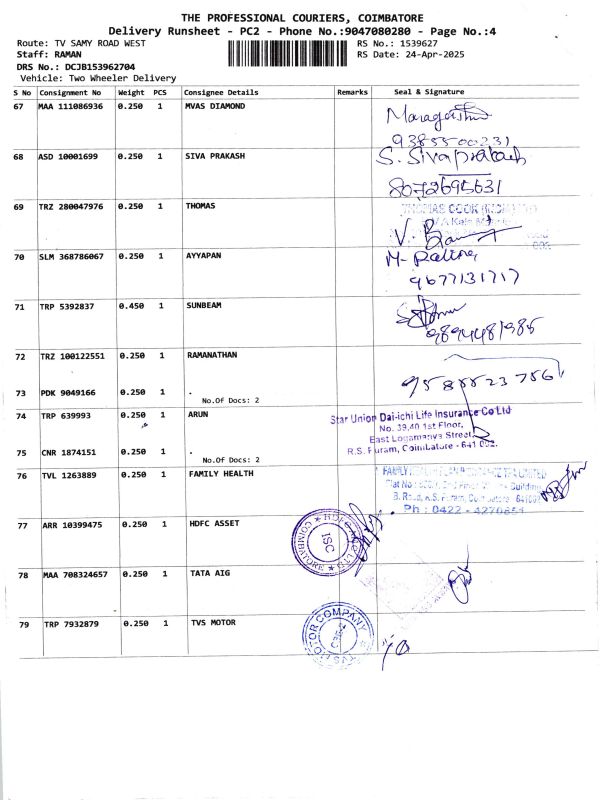 THE PROFESSIONAL COURIERS, COIMBATORE
Delivery Runsheet - PC2 - Phone No.:9047080280 - Page No.:4
Route: TV SAMY ROAD WEST RS No.: 1539627
Staff: RAMAN RS Date: 24-Apr-2025
DRS No.: DCJB153962704
Vehicle: Two Wheeler Delivery
S No Consignment No Weight PCS Consignee Details Remarks Seal & Signature
67 MAA 111086936 0.250 1 MVAS DIAMOND
9385500231
68 ASD 10001699 0.250 1 SIVA PRAKASH S. Siva prakash
8072695631
69 TRZ 280047976 0.250 1 THOMAS THOMAS COOK
V.
70 SLM 368786067 0.250 1 AYYAPAN M-
9677131717
71 TRP 5392837 0.450 1 SUNBEAM
9894481985
72 TRZ 100122551 0.250 1 RAMANATHAN
73 PDK 9049166 0.250 1 .
No.Of Docs: 2
74 TRP 639993 0.250 1 ARUN Star Union Dai-ichi Life Insurance Co Ltd
No. 39,40 1st Floor,
East Logamanya Street,
75 CNR 1874151 0.250 1 . R.S. Puram, Coimbatore - 641 002.
No.Of Docs: 2
76 TVL 1263889 0.250 1 FAMILY HEALTH FAMILY HEALTH LIMITED
B. Road, R.S. Puram, Coimbatore.
Ph : 0422 -
77 ARR 10399475 0.250 1 HDFC ASSET HDFC ISC COIMBATORE
78 MAA 708324657 0.250 1 TATA AIG
79 TRP 7932879 0.250 1 TVS MOTOR MOTOR COMPANY